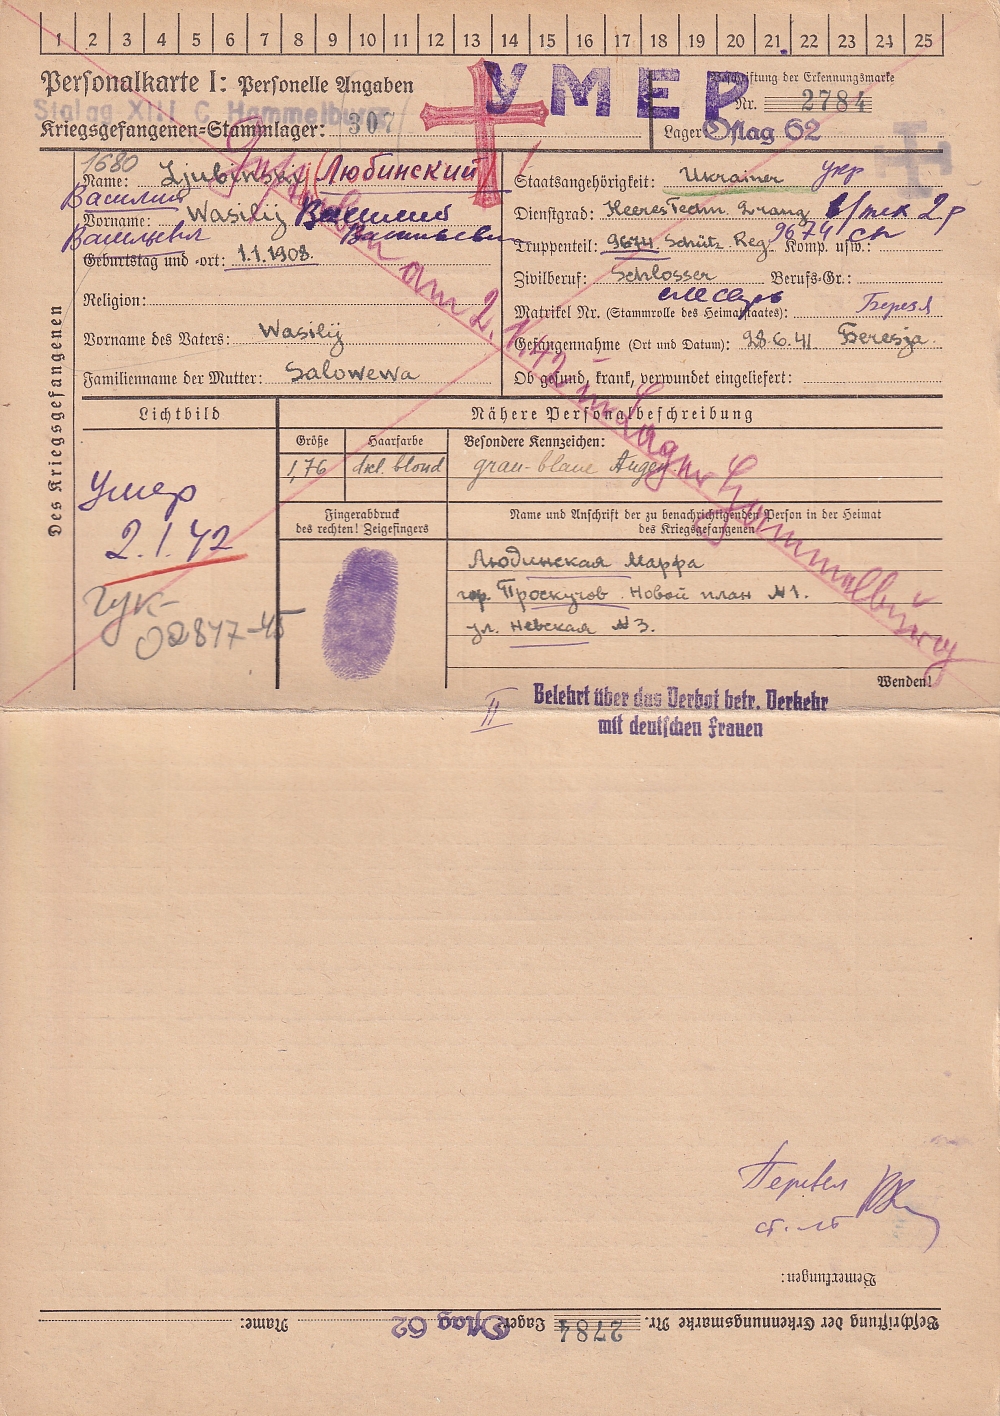 1 2 3 4 5 6 7 8 9 10 11 12 13 14 15 16 17 18 19 20 21 22 23 24 25
Personalkarte I: Personelle Angaben
УМЕР
Beschriftung der Erkennungsmarke
Nr. 2784
Stalag XIII C Hammelburg
Kriegsgefangenen-Stammlager: 307
Lager: Oflag 62
Des Kriegsgefangenen
1680
Name: Ljubinskij (Любинский
Staatsangehörigkeit: Ukrainer укр
Василий
Vorname: Wasilij Василий
Dienstgrad: Heeres Techn. 2 rang в/тех 2 р
Васильевич Васильевич
Truppenteil: 9674. Schütz. Reg. Komp. usw.: 9674 сп
Geburtstag und -ort: 1.1.1908.
Zivilberuf: Schlosser Berufs-Gr.:
слесарь
Religion:
Matrikel Nr. (Stammrolle des Heimatstaates):
Береза
Vorname des Vaters: Wasilij
Gefangennahme (Ort und Datum): 28.6.41. Beresja
Familienname der Mutter: Salowewa
Ob gesund, krank, verwundet eingeliefert:
Gestorben am 2.1.42 im Lager Hammelburg
Lichtbild
Nähere Personalbeschreibung
Größe Haarfarbe Besondere Kennzeichen:
1,76 dkl. blond grau-blaue Augen
Умер
2.1.42
Fingerabdruck
des rechten! Zeigefingers
Name und Anschrift der zu benachrichtigenden Person in der Heimat
des Kriegsgefangenen
Людинская Марфа
гор. Проскуров. Новой план №1.
ул. Невская №3.
гук-
02847-45
Wenden!
II
Belehrt über das Verbot betr. Verkehr
mit deutschen Frauen
Перевел
ст. л-т
Bemerkungen:
Beschriftung der Erkennungsmarke Nr. 2784 Lager: Oflag 62 Name: